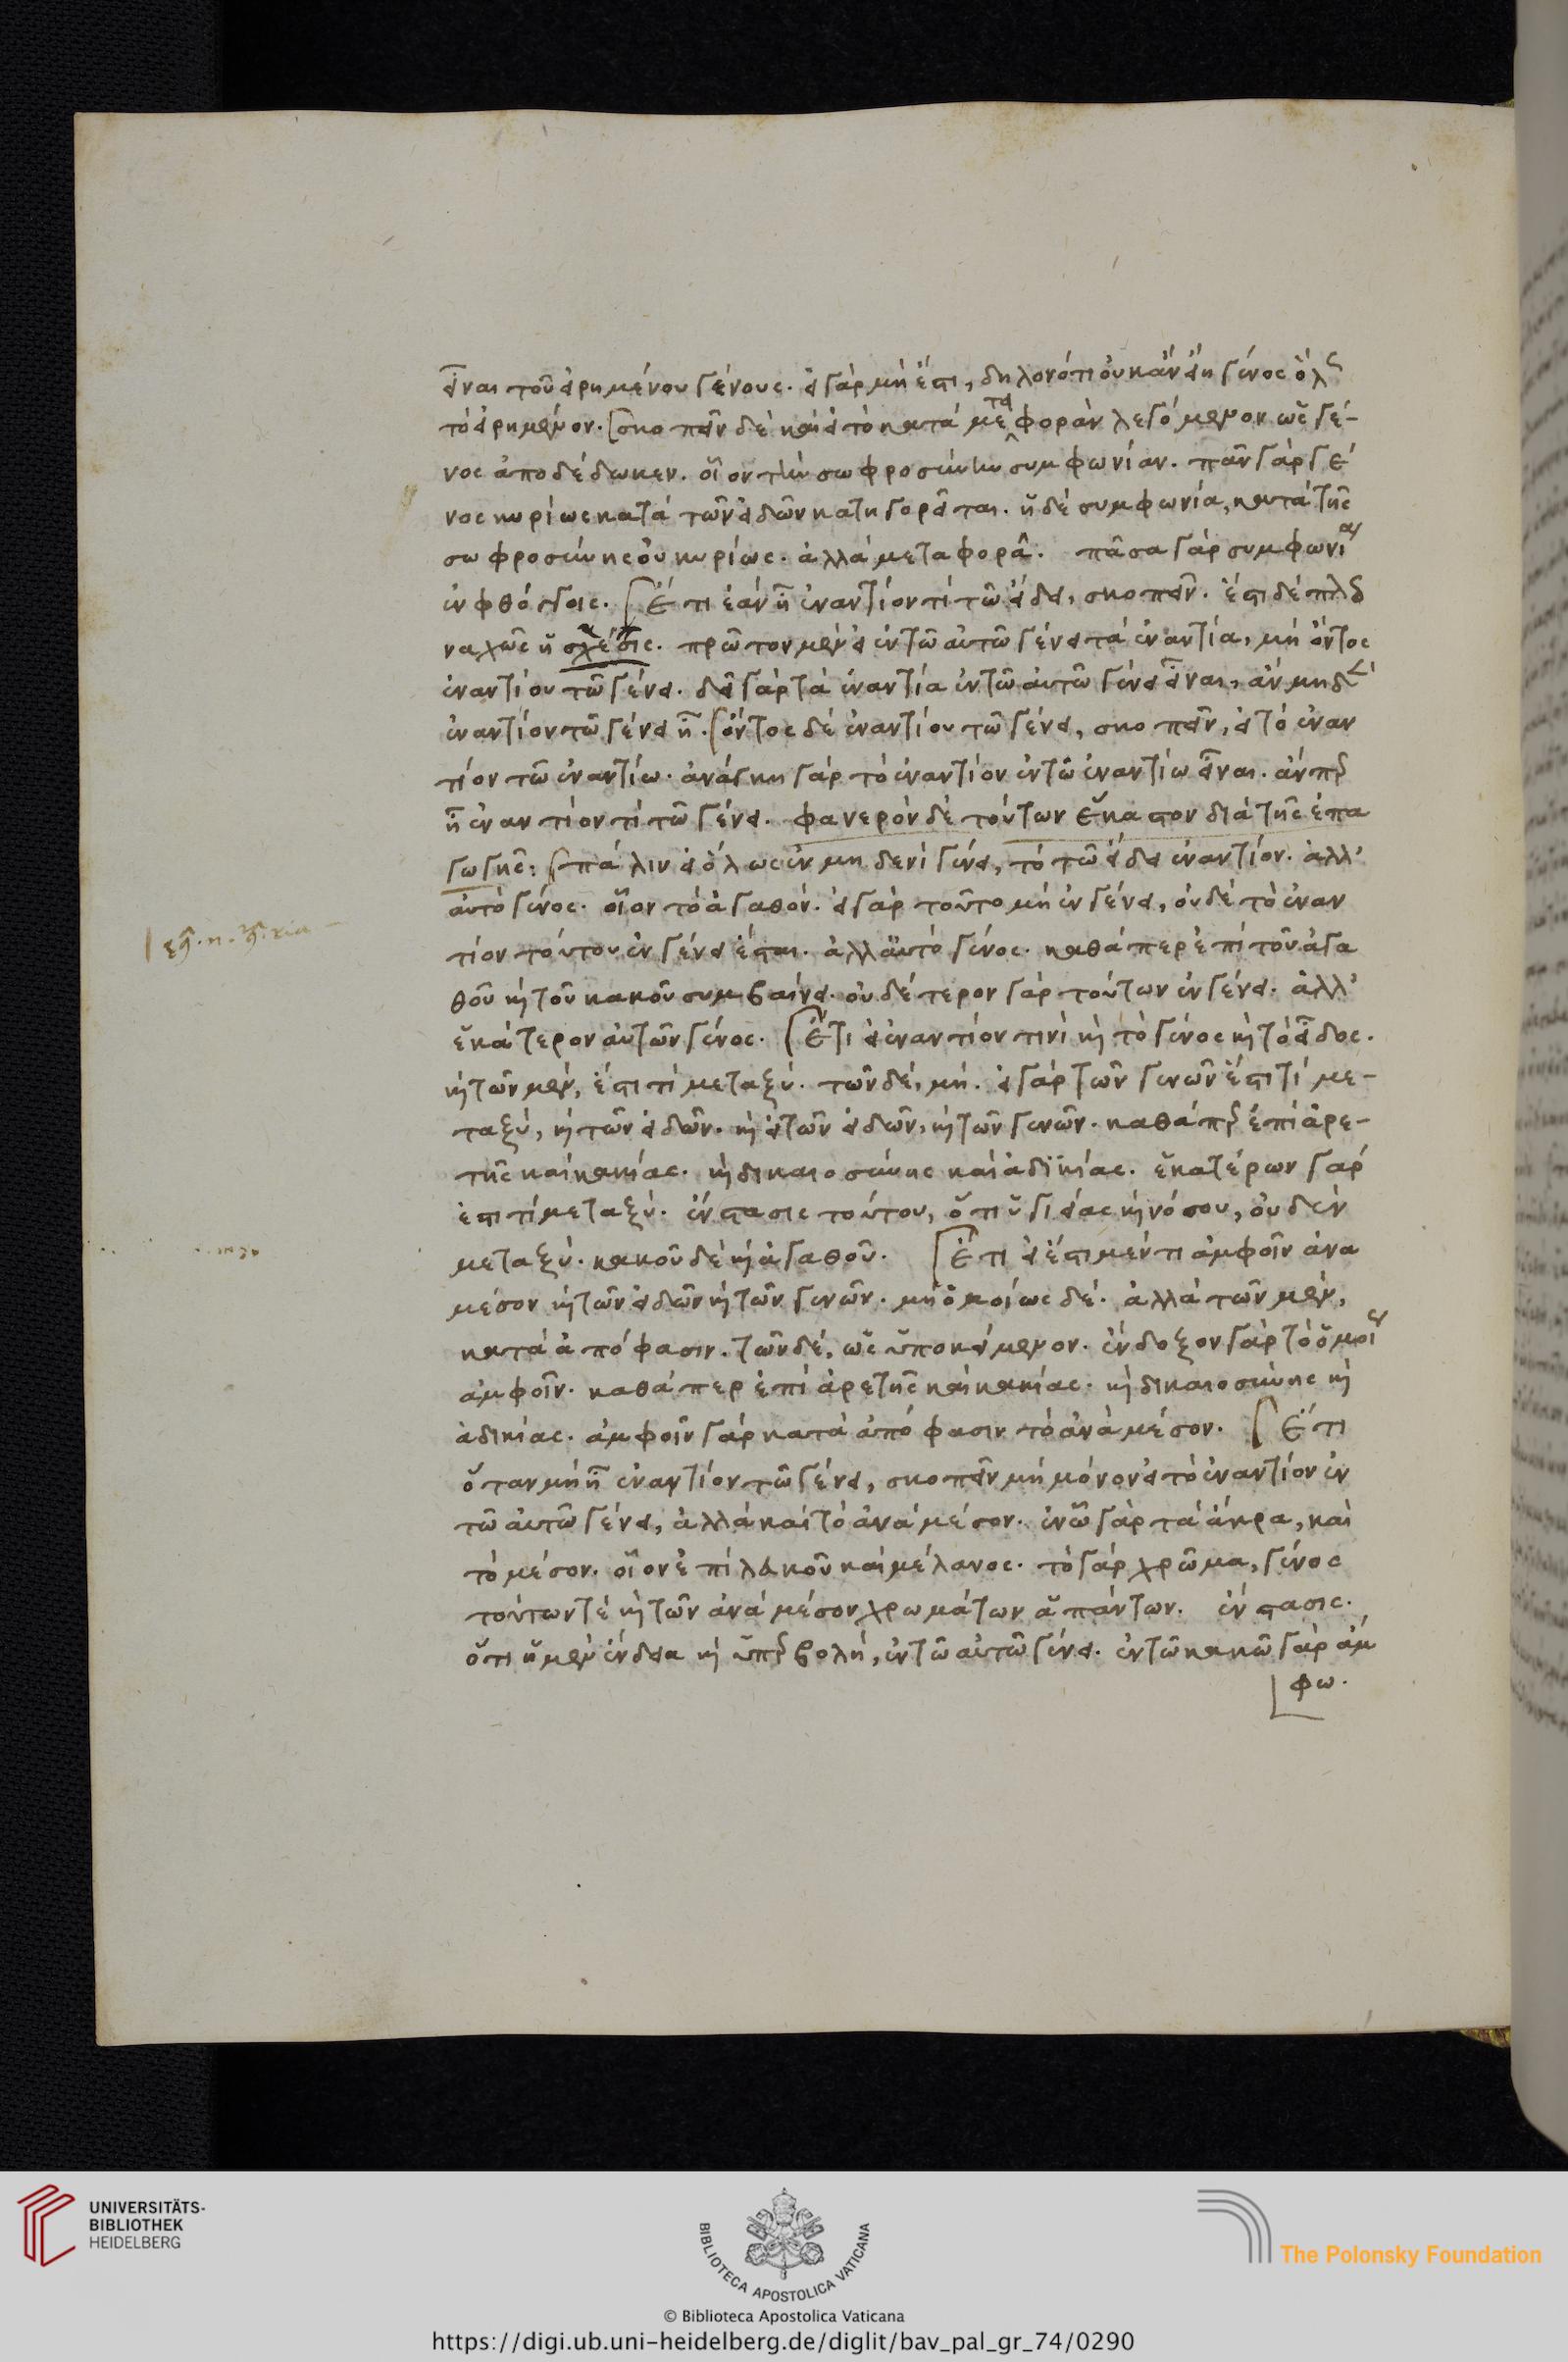 εἶναι τοῦ εἰρημένου γένους. εἰ γὰρ μὴ ἔστι, δηλονότι οὐκ ἂν εἴη γένος ὅλως
τὸ εἰρημένον. σκοπεῖν δὲ καὶ εἰ τὸ κατὰ μεταφορὰν λεγόμενον ὡς γέ-
νος ἀποδέδωκεν. οἷον τὴν σωφροσύνην συμφωνίαν. πᾶν γὰρ γέ
νος κυρίως κατὰ τῶν εἰδῶν κατηγορεῖται. ἡ δὲ συμφωνία, κατὰ τῆς
σωφροσύνης οὐ κυρίως. ἀλλὰ μεταφορᾷ. πᾶσα γὰρ συμφωνία
ἐν φθόγγοις. Ἔτι ἐὰν ᾖ ἐναντίον τί τῶ εἴδει, σκοπεῖν. ἔστι δὲ πλεο
ναχῶς ἡ σκέψις. πρῶτον μὲν εἰ ἐν τῶ αὐτῶ γένει τὰ ἐναντία, μὴ ὄντος
ἐναντίου τῶ γένει. δεῖ γὰρ τὰ ἐναντία ἐν τῶ αὐτῶ γένει εἶναι, ἂν μηδὲν
ἐναντίον τῶ γένει ᾖ. ὄντος δὲ ἐναντίου τῶ γένει, σκοπεῖν, εἰ τὸ ἐναν
τίον τῶ ἐναντίω. ἀνάγκη γὰρ τὸ ἐναντίον ἐν τῶ ἐναντίω εἶναι. ἄνπερ
ᾖ ἐναντίον τί τῶ γένει. φανερὸν δὲ τούτων ἕκαστον διὰ τῆς ἐπα
γωγῆς: πάλιν εἰ ὅλως ἐν μηδενὶ γένει, τὸ τῶ εἴδει ἐναντίον. ἀλλ'
αὐτὸ γένος. οἷον τὸ ἀγαθόν. εἰ γὰρ τοῦτο μὴ ἐν γένει, οὐδὲ τὸ ἐναν
τίον τούτου ἐν γένει ἔσται. ἀλλ' αὐτὸ γένος. καθάπερ ἐπὶ τοῦ ἀγα
θοῦ καὶ τοῦ κακοῦ συμβαίνει. οὐδέτερον γὰρ τούτων ἐν γένει. ἀλλ'
ἑκάτερον αὐτῶν γένος. Ἔτι εἰ ἐναντίον τινὶ καὶ τὸ γένος καὶ τὸ εἶδος.
καὶ τῶν μὲν, ἔστι τί μεταξύ. τῶν δὲ, μή. εἰ γὰρ τῶν γενῶν ἔστι τί με-
ταξύ, καὶ τῶν εἰδῶν. καὶ εἰ τῶν εἰδῶν, καὶ τῶν γενῶν. καθάπερ ἐπὶ ἀρε-
τῆς καὶ κακίας. καὶ δικαιοσύνης καὶ ἀδικίας. ἑκατέρων γάρ
ἐστι τί μεταξύ. ἔνστασις τούτου, ὅτι ὑγιείας καὶ νόσου, οὐδὲν
μεταξύ. κακοῦ δὲ καὶ ἀγαθοῦ. Ἔτι εἰ ἔστι μέν τι ἀμφοῖν ἀνα
μέσον καὶ τῶν εἰδῶν καὶ τῶν γενῶν. μὴ ὁμοίως δέ. ἀλλὰ τῶν μὲν,
κατὰ ἀπόφασιν. τῶν δὲ, ὡς ὑποκείμενον. ἔνδοξον γὰρ τὸ ὁμοίως
ἀμφοῖν. καθάπερ ἐπὶ ἀρετῆς καὶ κακίας. καὶ δικαιοσύνης καὶ
ἀδικίας. ἀμφοῖν γὰρ κατὰ ἀπόφασιν τὸ ἀνὰ μέσον. Ἔτι
ὅταν μὴ ᾖ ἐναντίον τῶ γένει, σκοπεῖν μὴ μόνον εἰ τὸ ἐναντίον ἐν
τῶ αὐτῶ γένει, ἀλλὰ καὶ τὸ ἀνὰ μέσον. ἐν ᾧ γὰρ τὰ ἄκρα, καὶ
τὸ μέσον. οἷον ἐπὶ λευκοῦ καὶ μέλανος. τὸ γὰρ χρῶμα, γένος
τούτων τὲ καὶ τῶν ἀνὰ μέσον χρωμάτων ἁπάντων. ἔνστασις.
ὅτι ἡ μὲν ἔνδεια καὶ ὑπερβολὴ, ἐν τῶ αὐτῶ γένει. ἐν τῶ κακῶ γὰρ ἄμ
φω.
UNIVERSITÄTS-
BIBLIOTHEK
HEIDELBERG
BIBLIOTECA APOSTOLICA VATICANA
The Polonsky Foundation
© Biblioteca Apostolica Vaticana
https://digi.ub.uni-heidelberg.de/diglit/bav_pal_gr_74/0290